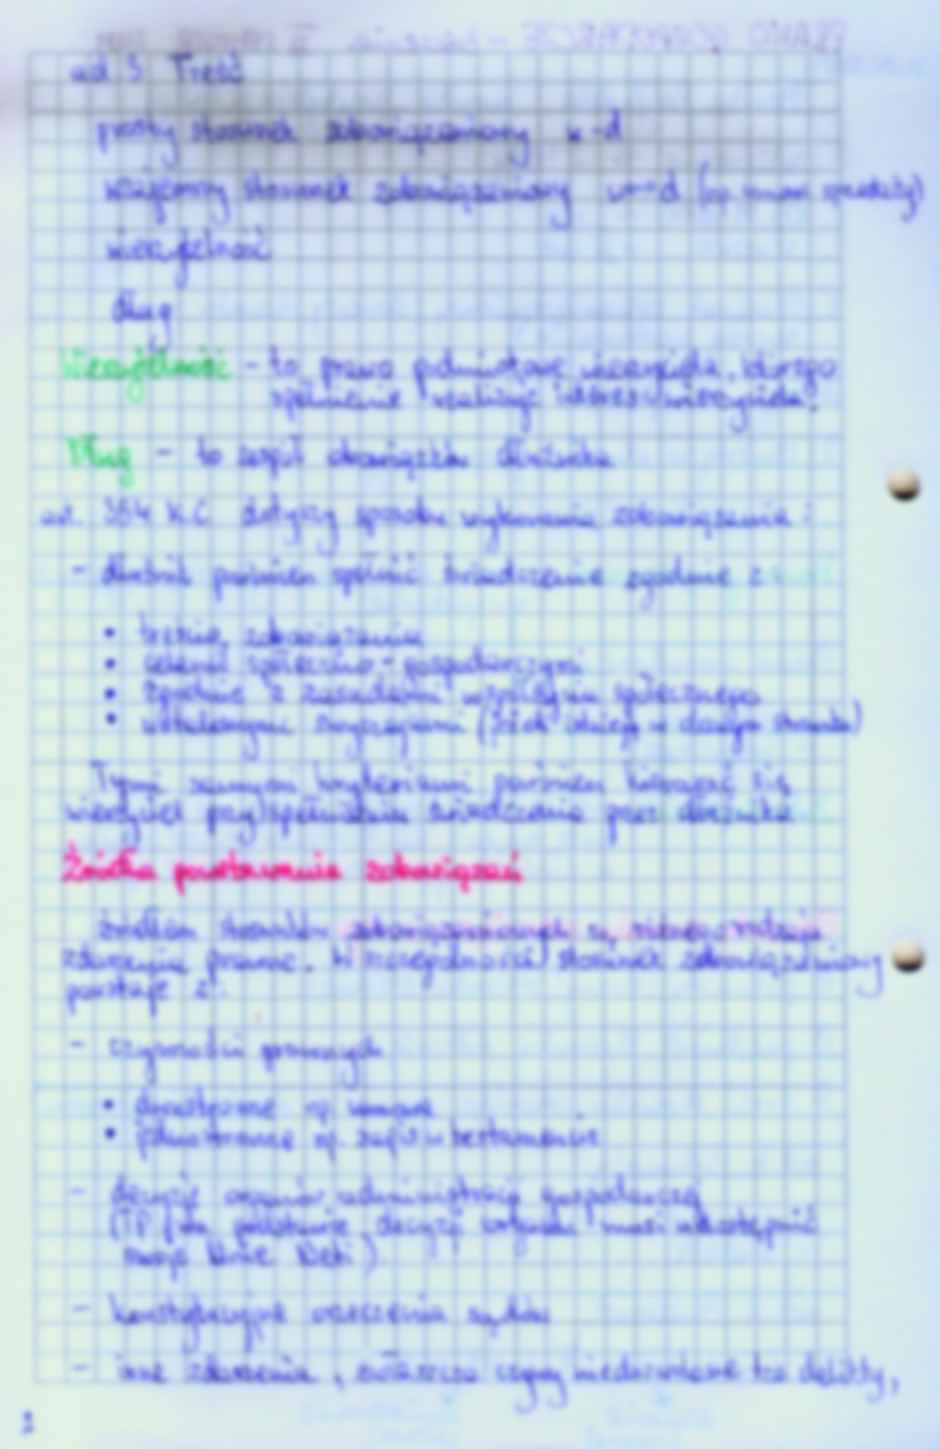 ad 3 Treść
prosty stosunek zobowiązaniowy w-d
wzajemny stosunek zobowiązaniowy w↔d (np. umowa sprzedaży)
wierzytelność
dług
Wierzytelność - to prawo podmiotowe wierzyciela, którego
spełnienie realizuje interes wierzyciela.
Dług - to zespół obowiązków dłużnika
art. 354 K.C. dotyczy sposobu wykonania zobowiązania:
- dłużnik powinien spełnić świadczenie zgodnie z
• treścią zobowiązania
• celem społeczno-gospodarczym
• zgodnie z zasadami współżycia społecznego
• ustalonymi zwyczajami (jeżeli istnieją w danym stosunku)
Tymi samymi kryteriami powinien kierować się
wierzyciel przy spełnianiu świadczenia przez dłużnika
Źródła powstawania zobowiązań
źródłem stosunków zobowiązaniowych są różnego rodzaju
zdarzenia prawne. W szczególności stosunek zobowiązaniowy
powstaje z:
- czynności prawnych
• dwustronne np. umowa
• jednostronne np. zapis w testamencie
- decyzje organów administracji gospodarczej
(TP na podstawie decyzji musi udostępnić
swoje linie)
- konstytucyjne orzeczenia sądu
- inne zdarzenia, zwłaszcza czyny niedozwolone tzw delikty,
2